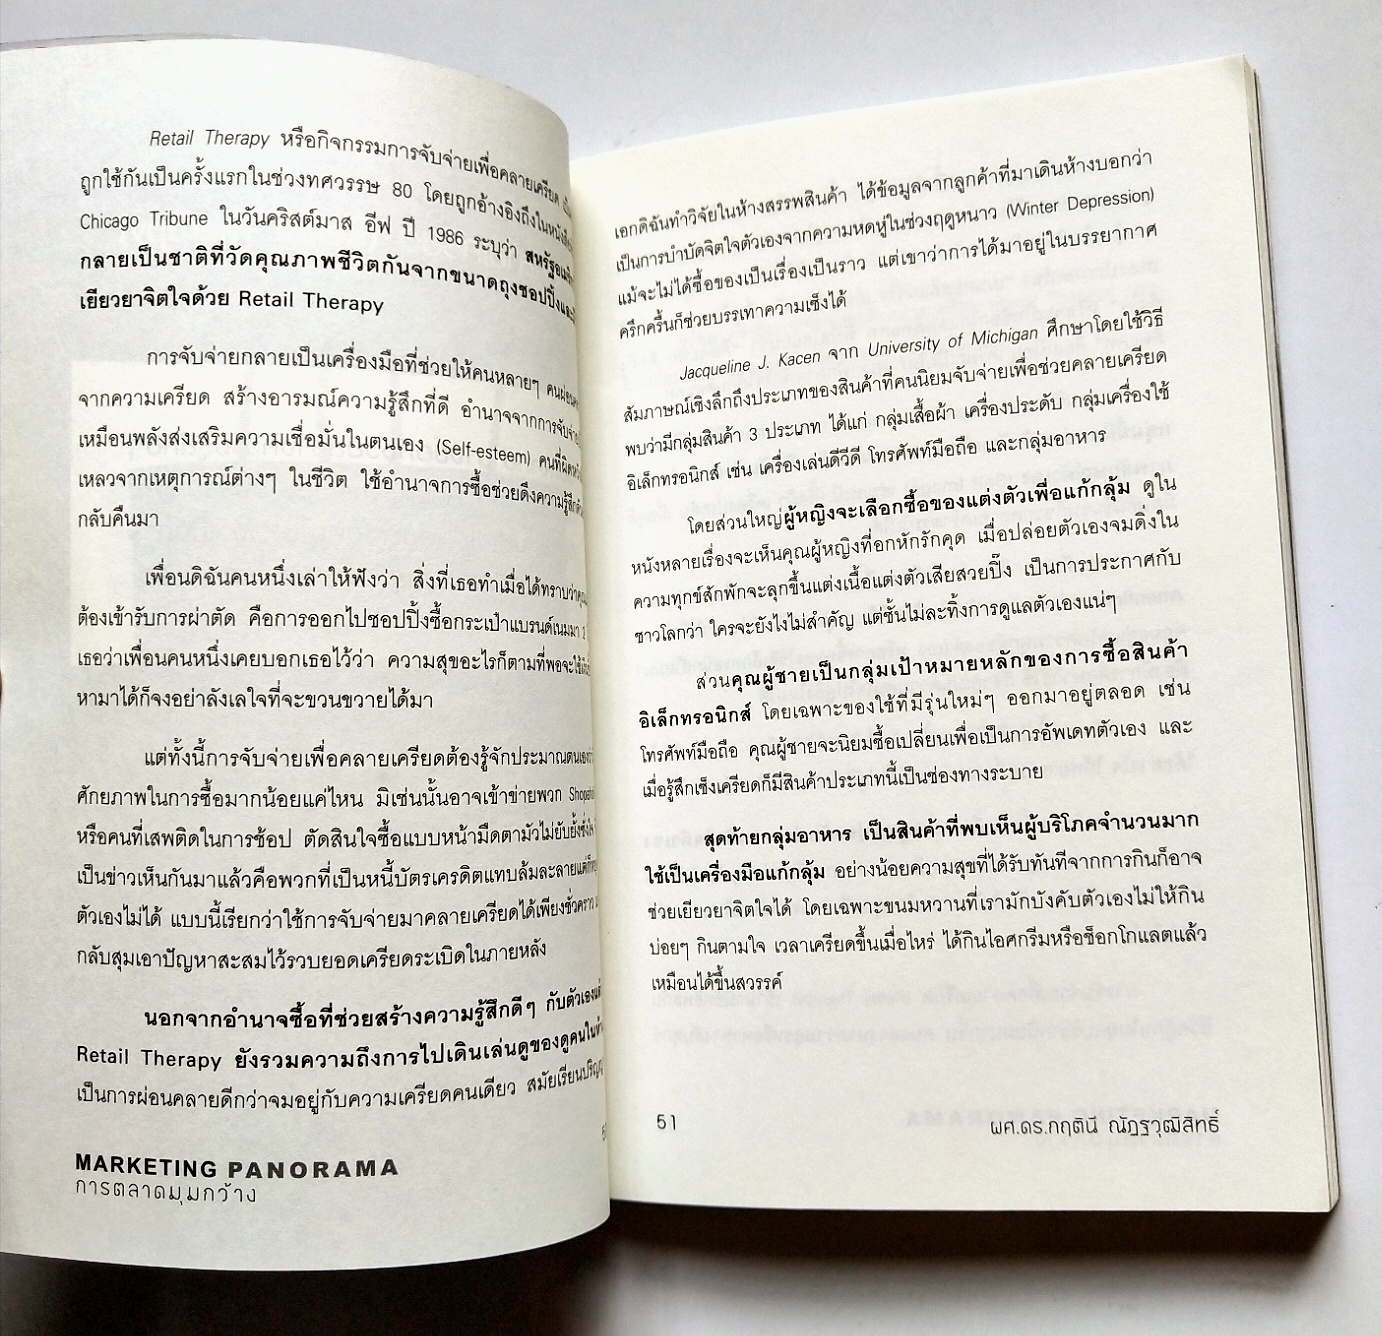 Retail Therapy หรือกิจกรรมการจับจ่ายเพื่อคลายเครียด
ถูกใช้กันเป็นครั้งแรกในช่วงทศวรรษ 80 โดยถูกอ้างอิงถึงในหนังสือ
Chicago Tribune ในวันคริสต์มาส อีฟ ปี 1986 ระบุว่า
กลายเป็นชาติที่วัดคุณภาพชีวิตกันจากขนาดถุงชอปปิ้งและ
เยียวยาจิตใจด้วย Retail Therapy
การจับจ่ายกลายเป็นเครื่องมือที่ช่วยให้คนหลายๆ
จากความเครียด สร้างอารมณ์ความรู้สึกที่ดี อำนาจจากการจับจ่าย
เหมือนพลังส่งเสริมความเชื่อมั่นในตนเอง (Self-esteem)
เหลวจากเหตุการณ์ต่างๆ ในชีวิต ใช้อำนาจการซื้อช่วยดึงความรู้สึก
กลับคืนมา
เพื่อนดิฉันคนหนึ่งเล่าให้ฟังว่า สิ่งที่เธอทำเมื่อได้ทราบว่า
ต้องเข้ารับการผ่าตัด คือการออกไปชอปปิ้งซื้อกระเป๋าแบรนด์เนมมา 2
เธอว่าเพื่อนคนหนึ่งเคยบอกเธอไว้ว่า ความสุขอะไรก็ตามที่พอจะใช้
หามาได้ก็จงอย่าลังเลใจที่จะขวนขวายได้มา
แต่ทั้งนี้การจับจ่ายเพื่อคลายเครียดต้องรู้จักประมาณตนเอง
ศักยภาพในการซื้อมากน้อยแค่ไหน มิเช่นนั้นอาจเข้าข่ายพวก
หรือคนที่เสพติดในการช้อป ตัดสินใจซื้อแบบหน้ามืดตามัวไม่ยับยั้งชั่งใจ
เป็นข่าวเห็นกันมาแล้วคือพวกที่เป็นหนี้บัตรเครดิตแทบล้มละลาย
ตัวเองไม่ได้ แบบนี้เรียกว่าใช้การจับจ่ายมาคลายเครียดได้เพียงชั่วคราว
กลับสุมเอาปัญหาสะสมไว้รวบยอดเครียดระเบิดในภายหลัง
นอกจากอำนาจซื้อที่ช่วยสร้างความรู้สึกดีๆ กับตัวเอง
Retail Therapy ยังรวมความถึงการไปเดินเล่นดูของดูคนใน
เป็นการผ่อนคลายดีกว่าจมอยู่กับความเครียดคนเดียว สมัยเรียน
MARKETING PANORAMA
การตลาดมุมกว้าง
เอกดิฉันทำวิจัยในห้างสรรพสินค้า ได้ข้อมูลจากลูกค้าที่มาเดินห้างบอกว่า
เป็นการบำบัดจิตใจตัวเองจากความหดหู่ในช่วงฤดูหนาว (Winter Depression)
แม้จะไม่ได้ซื้อของเป็นเรื่องเป็นราว แต่เขาว่าการได้มาอยู่ในบรรยากาศ
ครึกครื้นก็ช่วยบรรเทาความเซ็งได้
Jacqueline J. Kacen จาก University of Michigan ศึกษาโดยใช้วิธี
สัมภาษณ์เชิงลึกถึงประเภทของสินค้าที่คนนิยมจับจ่ายเพื่อช่วยคลายเครียด
พบว่ามีกลุ่มสินค้า 3 ประเภท ได้แก่ กลุ่มเสื้อผ้า เครื่องประดับ กลุ่มเครื่องใช้
อิเล็กทรอนิกส์ เช่น เครื่องเล่นดีวีดี โทรศัพท์มือถือ และกลุ่มอาหาร
โดยส่วนใหญ่ผู้หญิงจะเลือกซื้อของแต่งตัวเพื่อแก้กลุ้ม ดูใน
หนังหลายเรื่องจะเห็นคุณผู้หญิงที่อกหักรักคุด เมื่อปล่อยตัวเองจมดิ่งใน
ความทุกข์สักพักจะลุกขึ้นแต่งเนื้อแต่งตัวเสียสวยปิ๊ง เป็นการประกาศกับ
ชาวโลกว่า ใครจะยังไงไม่สำคัญ แต่ชั้นไม่ละทิ้งการดูแลตัวเองแน่ๆ
ส่วนคุณผู้ชายเป็นกลุ่มเป้าหมายหลักของการซื้อสินค้า
อิเล็กทรอนิกส์ โดยเฉพาะของใช้ที่มีรุ่นใหม่ๆ ออกมาอยู่ตลอด เช่น
โทรศัพท์มือถือ คุณผู้ชายจะนิยมซื้อเปลี่ยนเพื่อเป็นการอัพเดทตัวเอง และ
เมื่อรู้สึกเซ็งเครียดก็มีสินค้าประเภทนี้เป็นช่องทางระบาย
สุดท้ายกลุ่มอาหาร เป็นสินค้าที่พบเห็นผู้บริโภคจำนวนมาก
ใช้เป็นเครื่องมือแก้กลุ้ม อย่างน้อยความสุขที่ได้รับทันทีจากการกินก็อาจ
ช่วยเยียวยาจิตใจได้ โดยเฉพาะขนมหวานที่เรามักบังคับตัวเองไม่ให้กิน
บ่อยๆ กินตามใจ เวลาเครียดขึ้นเมื่อไหร่ ได้กินไอศกรีมหรือช็อกโกแลตแล้ว
เหมือนได้ขึ้นสวรรค์
51
ผศ.ดร.กฤตินี ณัฏฐวุฒิสิทธิ์